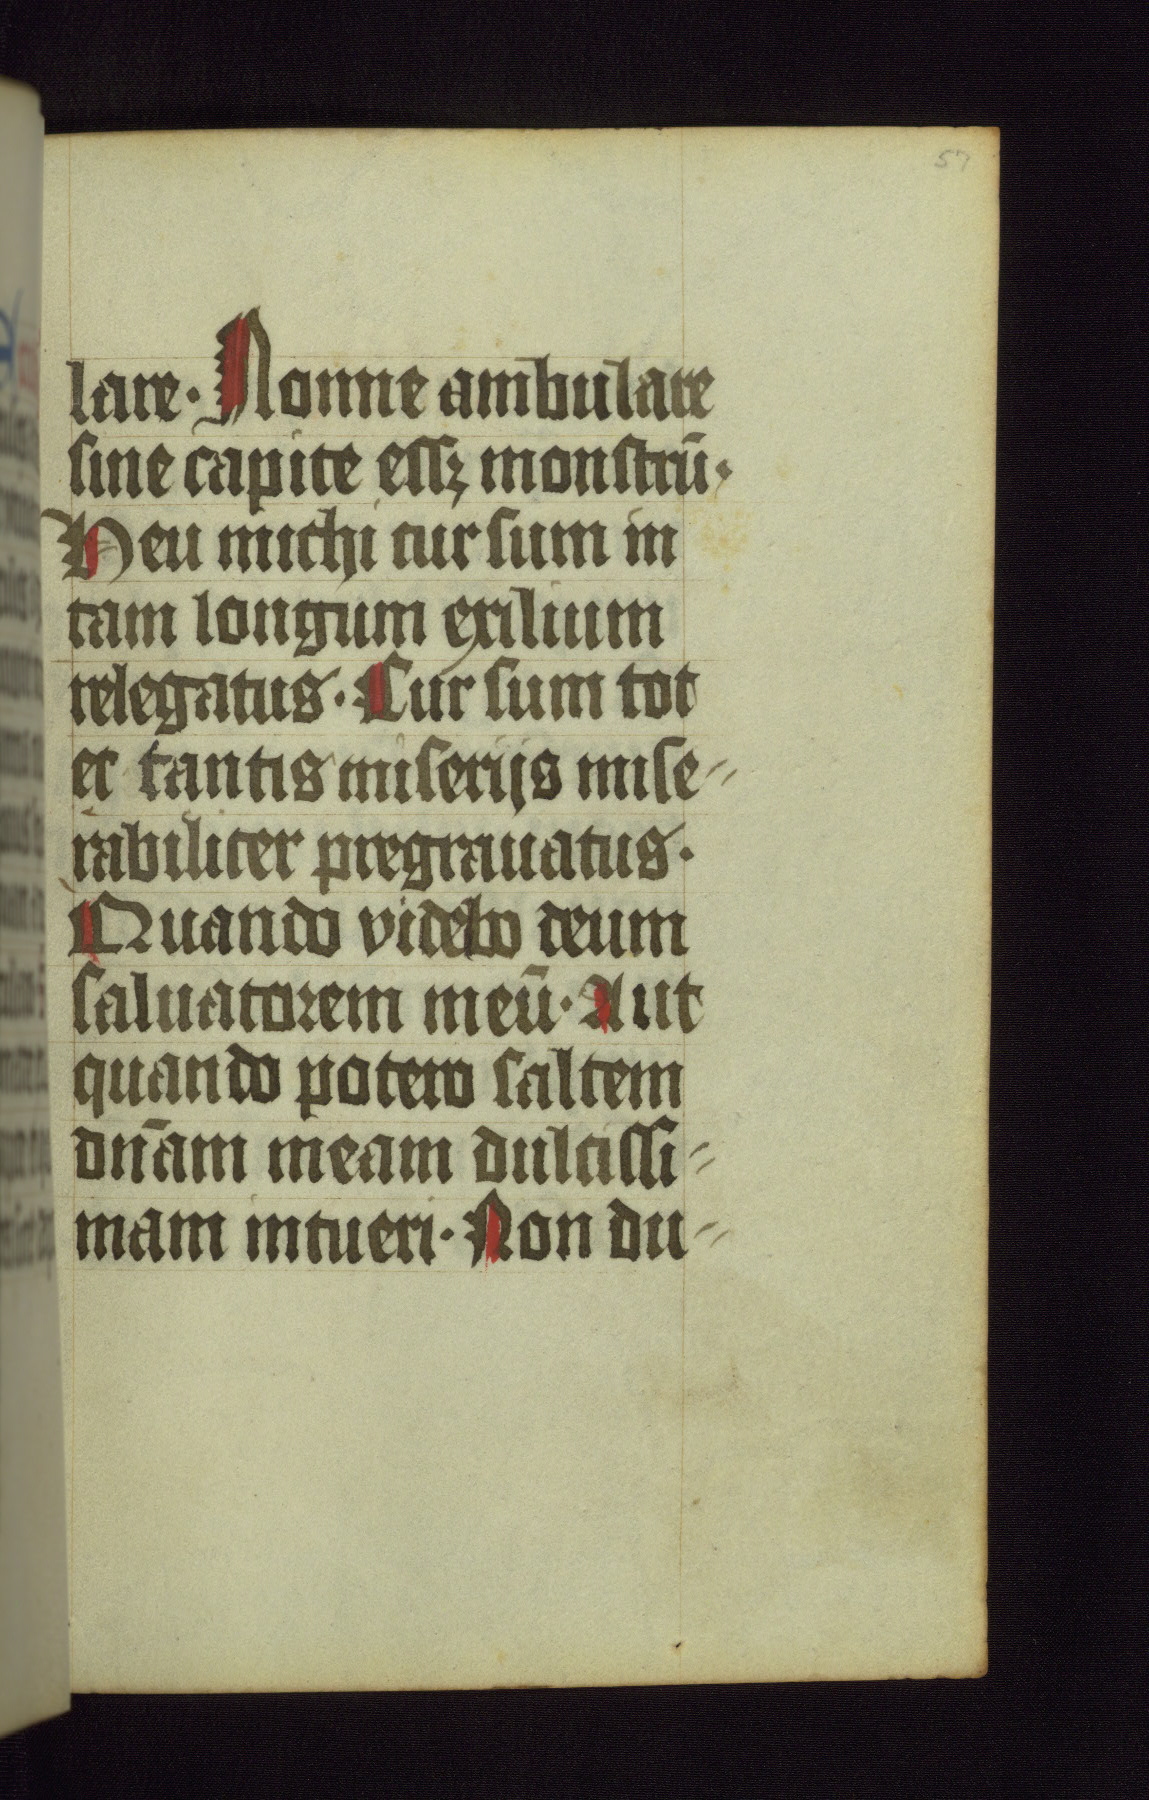 57
lare· Nonne ambulare
sine capite essꝫ monstrū·
Heu michi cur sum in
tam longum exilium
relegatus· Cur sum tot
et tantis miserijs mise-
rabiliter pregrauatus·
Quando videbo deum
saluatorem meū· Aut
quando potero saltem
dn̄am meam dulcissi-
mam intueri· Non du-